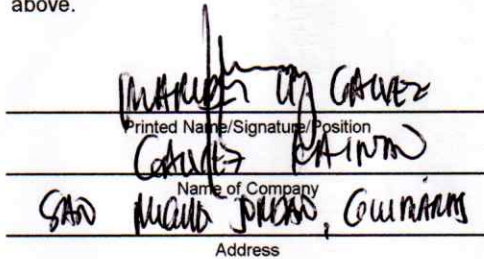 above.
GALVEZ
Printed Name/Signature/Position
GALVEZ
Name of Company
SAN MIGUEL JORDAN, GUIMARAS
Address